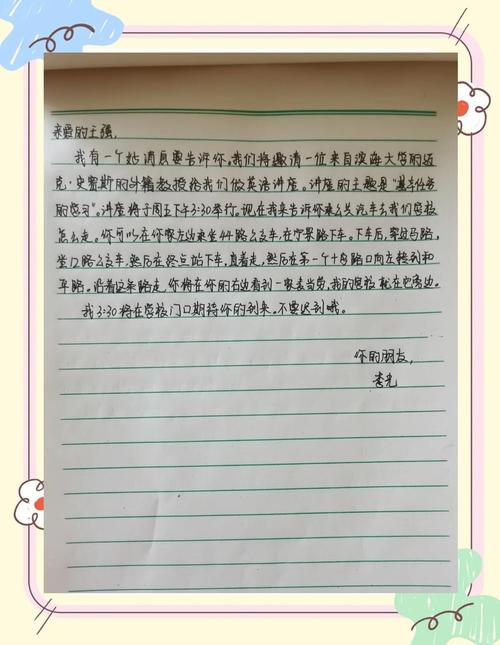 亲爱的王强,
我有一个好消息要告诉你。我们将邀请一位来自滨海大学的迈
克·史密斯的外籍教授给我们做英语讲座。讲座的主题是“基于任务
的学习”。讲座将于周五下午3:30举行。现在我来告诉你乘公共汽车去我们学校
怎么走。你可以在你家左边乘坐44路公交车,在宁泉路下车。下车后,穿过马路,
坐12路公交车,然后在终点站下车,直着走,然后在第一个十字路口向左拐到和
平路。沿着这条路走,你将在你的右边看到一家麦当劳,我的学校就在它旁边。
我3:30将在学校门口期待你的到来。不要迟到哦。
你的朋友,
李光